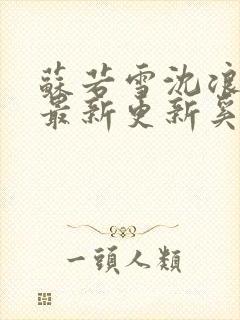 蘇若雪沈浪
最新更新奚
一頭人類